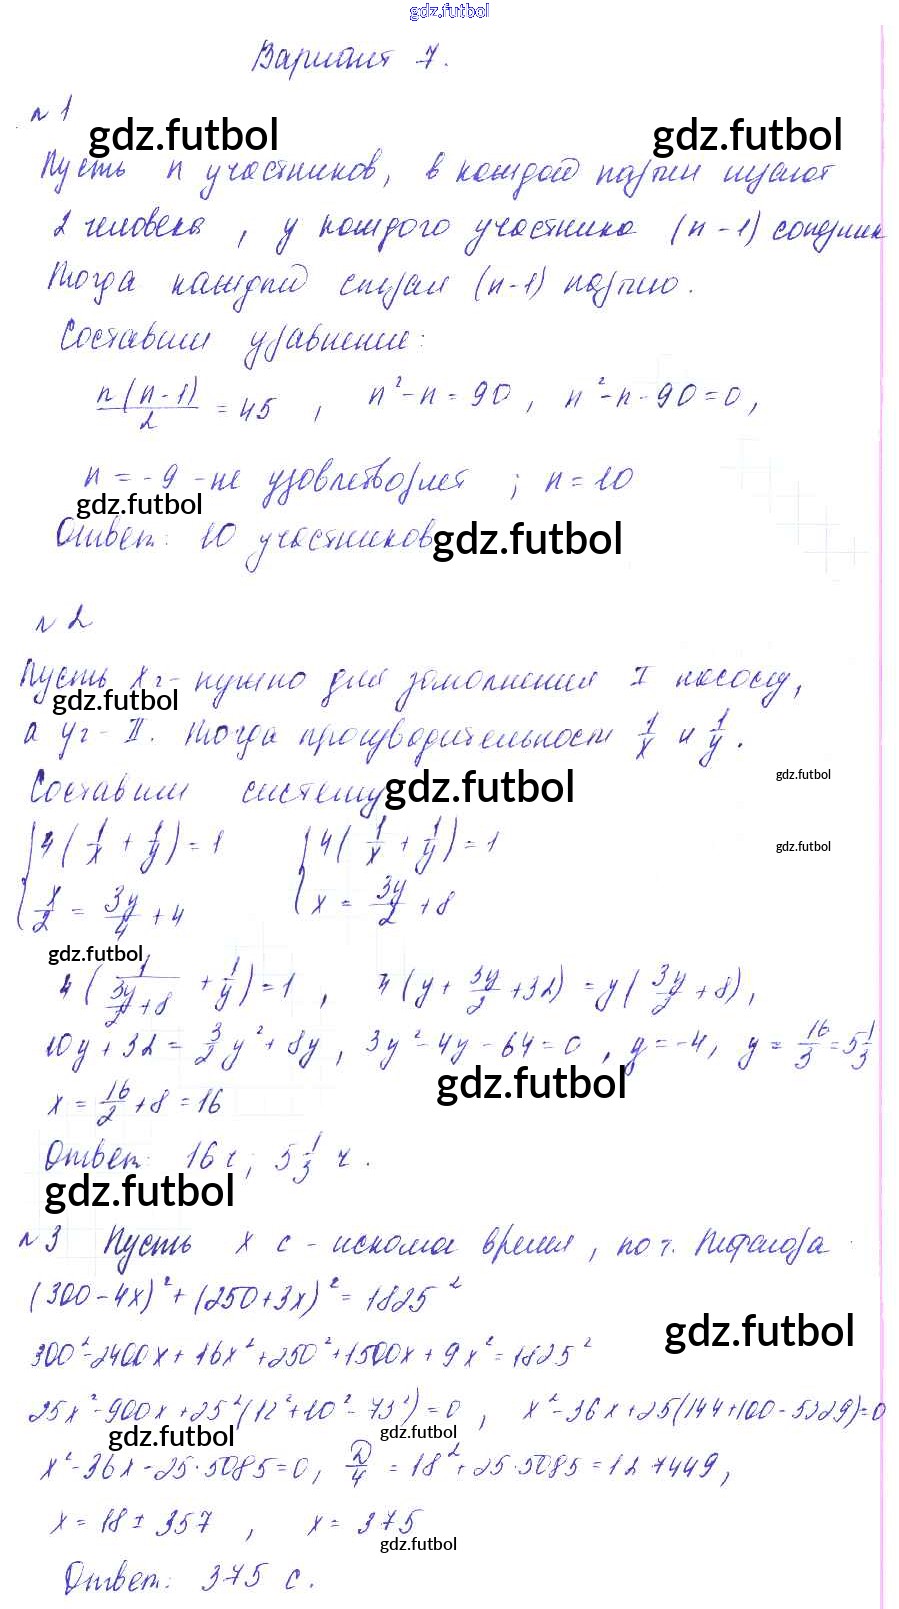 gdz.futbol
Вариант 7.
№ 1
gdz.futbol gdz.futbol
Пусть n участников, в каждой партии играют
2 человека, у каждого участника (n - 1) соперник
Тогда каждый сыграл (n-1) партию.
Составим уравнение:
n(n-1)/2 = 45, n² - n = 90, n² - n - 90 = 0,
n = -9 - не удовлетворяет; n = 10
gdz.futbol
Ответ: 10 участников
gdz.futbol
№ 2
Пусть x ч - нужно для заполнения I насосу,
gdz.futbol
а y ч - II. Тогда производительности 1/x и 1/y.
gdz.futbol
Составим систему
gdz.futbol
4(1/x + 1/y) = 1 4(1/x + 1/y) = 1
gdz.futbol
x/2 = 3y/4 + 4 x = 3y/2 + 8
gdz.futbol
4(1/(3y/2 + 8) + 1/y) = 1, 4(y + 3y/2 + 32) = y(3y/2 + 8),
10y + 32 = 3/2 y² + 8y, 3y² - 4y - 64 = 0, y = -4, y = 16/3 = 5 1/3
gdz.futbol
x = 16/2 + 8 = 16
Ответ: 16 ч; 5 1/3 ч.
gdz.futbol
№ 3 Пусть x с - искомое время, по т. Пифагора
(300 - 4x)² + (250 + 3x)² = 1825²
gdz.futbol
300² - 2400x + 16x² + 250² + 1500x + 9x² = 1825²
25x² - 900x + 25²(12² + 10² - 73²) = 0, x² - 36x + 25(144 + 100 - 5329) = 0
gdz.futbol gdz.futbol
x² - 36x - 25·5085 = 0, D/4 = 18² + 25·5085 = 127449,
x = 18 ± 357, x = 375
gdz.futbol
Ответ: 375 с.